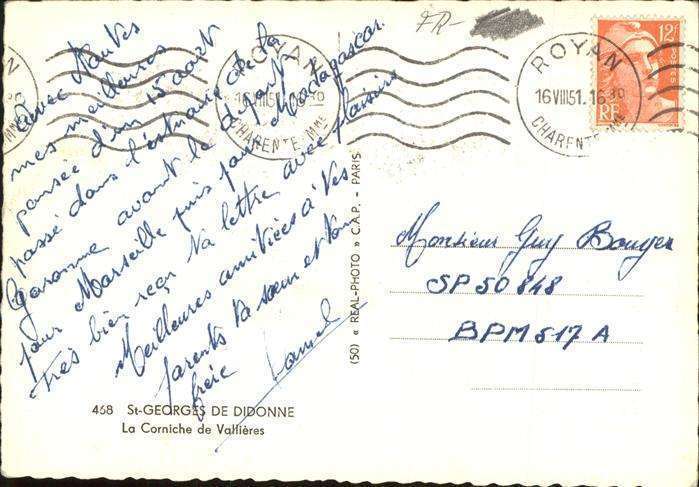 avec toutes
mes meilleures
pensée d'un 15 août
passé dans l'estuaire de la
Garonne avant le départ
pour Marseille puis pour Madagascar.
Très bien reçu ta lettre avec plaisirs
Meilleures amitiées à tes
parents ta sœur et ton
frère
468 St-GEORGES DE DIDONNE
La Corniche de Vallières
(50) « REAL-PHOTO » C.A.P. - PARIS
FR-
ROYAN
16 VIII 51. 16 30
CHARENTE MME
ROYAN
16 VIII 51. 16 30
CHARENTE MME
12F
RF
Monsieur Guy
SP 50 848
BPM 517 A